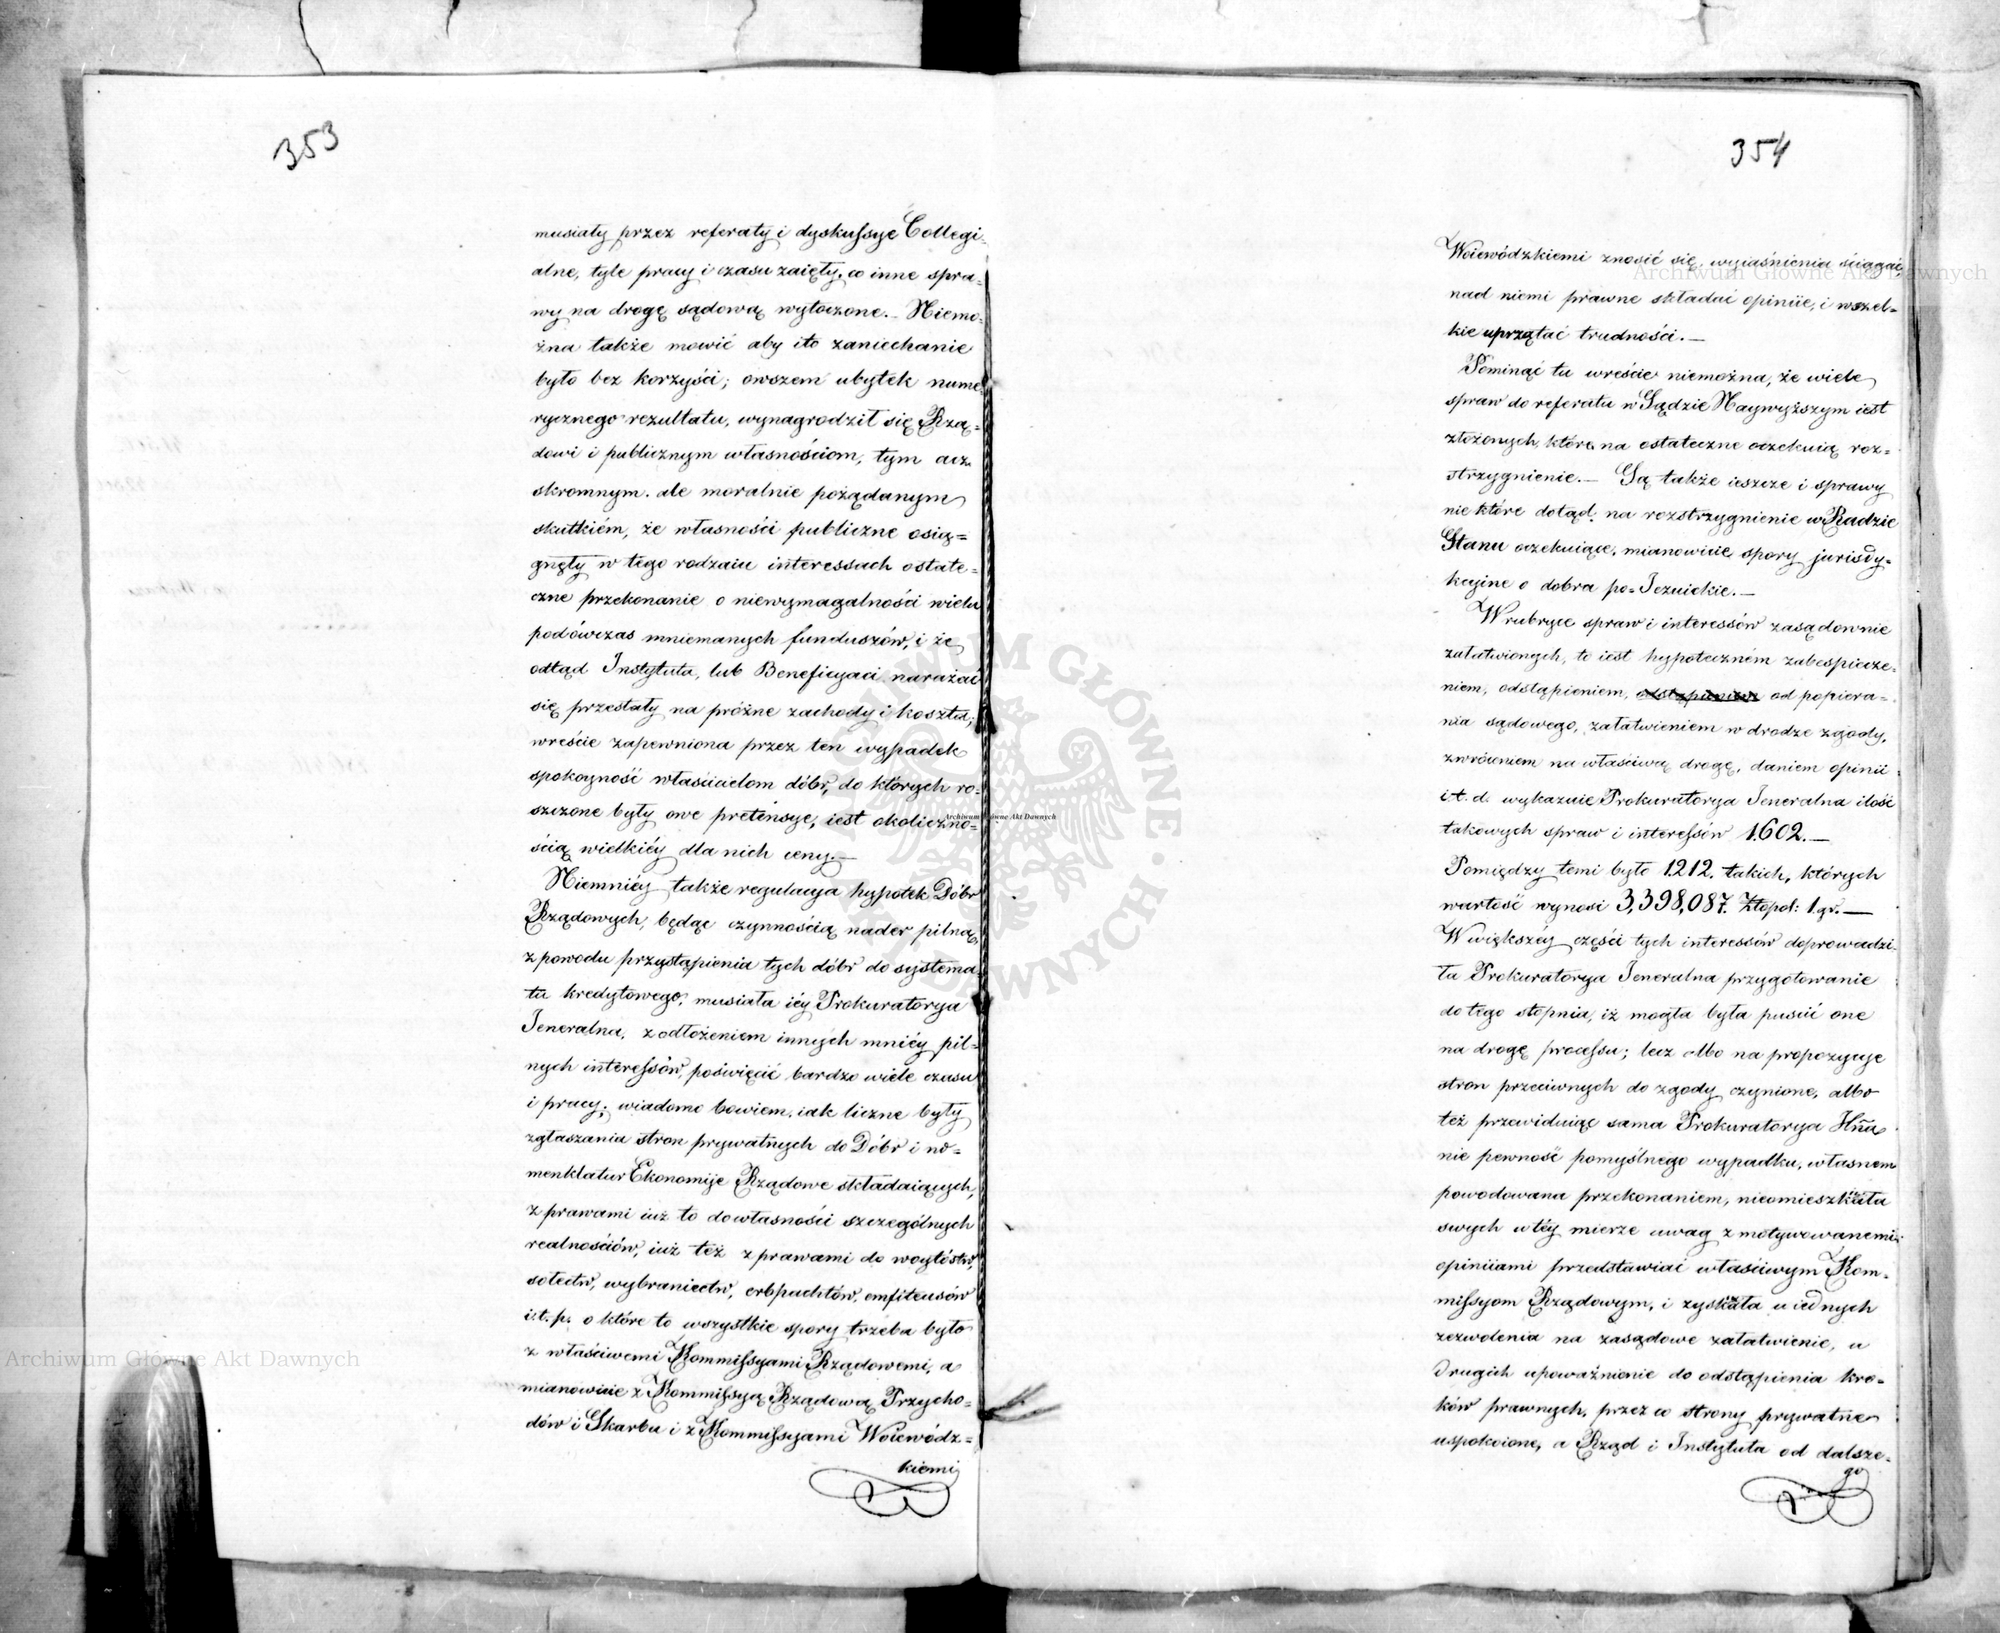 353
musiały przez referaty i dyskussye Collegi-
alne, tyle pracy i czasu zaięły, co inne spra-
wy na drogę sądową wytoczone. – Niemo-
żna także mowić aby ito zaniechanie
było bez korzyści; owszem ubytek nume-
rycznego rezultatu, wynagrodził się Rzą-
dowi i publicznym własnościom, tym acz
skromnym, ale moralnie pożądanym
skutkiém, że własności publiczne osią=
gnęły w tego rodzaiu interessach ostate-
czne przekonanie o niewymagalności wielu
podówczas mniemanych funduszów, i że
odtąd Instytuta, lub Beneficyaci narażać
się przestały na próżne zachody i koszta;
wreście zapewniona przez ten wypadek
spokoyność właścicielom dóbr, do których ro-
szczone były owe pretensye, iest okoliczno-
ścią wielkiéy dla nich ceny. –
Niemniéy także regulacya hypotek Dóbr
Rządowych, będąc czynnością nader pilną,
z powodu przystąpienia tych dóbr do systema-
tu kredytowego, musiała iéy Prokuratorya
Jeneralna, z odłożeniem innych mniéy pil-
nych interessów, poświęcić bardzo wiele czasu
i pracy; wiadomo bowiem, iak liczne były
zgłaszania stron prywatnych do Dóbr i no-
menklatur Ekonomije Rządowe składaiących,
z prawami iuż to do własności szczególnych
realnościów, iuż też z prawami do woytóstw,
sołectw, wybraniectw, erbpachtów, emfiteusów
i.t.p. o które to wszystkie spory trzeba było
z właściwemi Kommissyami Rządowemi, a
mianowicie z Kommissyą Rządową Przycho-
dów i Skarbu i z Kommissyami Woiewódz-
kiemi
354
Woiewódzkiemi znosić się, wyiaśnienia ściągać,
nad niemi prawne składać opiniie, i wszel-
kie uprzątać trudności. –
Pominąć tu wreście niemożna, że wiele
spraw do referatu w Sądzie Naywyższym iest
złożonych, które na ostateczne oczekuią roz-
strzygnienie. – Są także ieszcze i sprawy
nie które dotąd na rozstrzygnienie w Radzie
Stanu oczekuiące, mianowicie spory jurisdy-
kcyine o dobra po-Jezuickie. –
W rubryce spraw i interessów zasądownie
załatwionych, to iest hypoteczném zabespiecze-
niem, odstąpieniem, od popiera-
nia sądowego, załatwieniem w drodze zgody,
zwróceniem na właściwą drogę, daniem opinii
i t. d. wykazuie Prokuratorya Jeneralna ilość
takowych spraw i interessów 1.602. –
Pomiędzy temi było 1212. takich, których
wartość wynosi 3,398,087. Złopol: 1. gr. –
W większéy części tych interessów doprowadzi-
ła Prokuratorya Jeneralna przygotowanie
do tego stopnia, iż mogła była puścić one
na drogę processu; lecz albo na propozycye
stron przeciwnych do zgody czynione, albo
też przewiduiąc sama Prokuratorya
nie pewność pomyślnego wypadku, własnem
powodowana przekonaniem, nieomieszkała
swych w téy mierze uwag z motywowanemi
opiniiami przedstawiać właściwym Kom-
missyom Rządowym, i zyskała u iednych
zezwolenia na zasądowe załatwienie, u
drugich upoważnienie do odstąpienia kro-
ków prawnych, przez co strony prywatne
uspokoione, a Rząd i Instytuta od dalsze-
go
Archiwum Główne Akt Dawnych
Archiwum Główne Akt Dawnych
Archiwum Główne Akt Dawnych
ARCHIWUM GŁÓWNE · AKT DAWNYCH ·